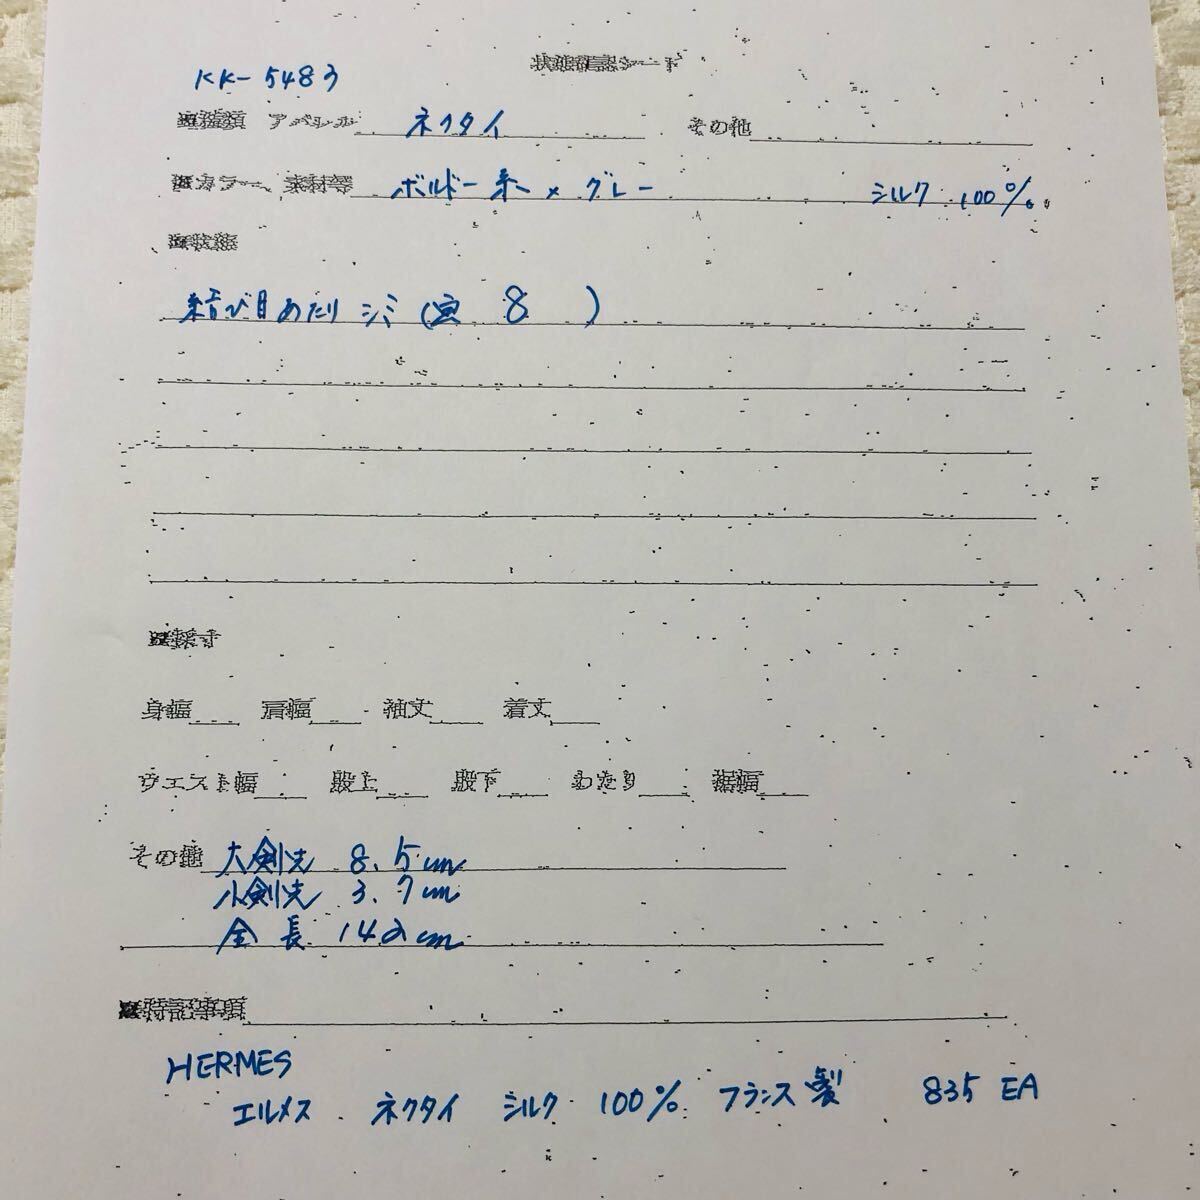 状態確認シート
KK-5483
■種類 アパレル ネクタイ その他
■カラー、素材等 ボルドー系×グレー シルク 100%
■状態
結び目あたり シミ(写 8 )
■採寸
身幅 肩幅 袖丈 着丈
ウエスト幅 股上 股下 わたり 裾幅
その他 大剣先 8.5cm
小剣先 3.7cm
全長 142cm
■特記事項
HERMES
エルメス ネクタイ シルク 100% フランス製 835 EA